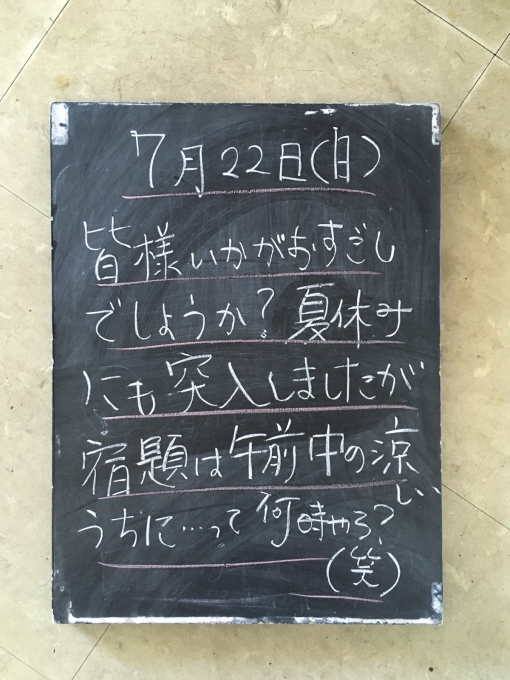 7月22日(日)
皆様いかがおすごし
でしょうか?夏休み
にも突入しましたが
宿題は午前中の涼しい
うちに…って何時やろ?
(笑)